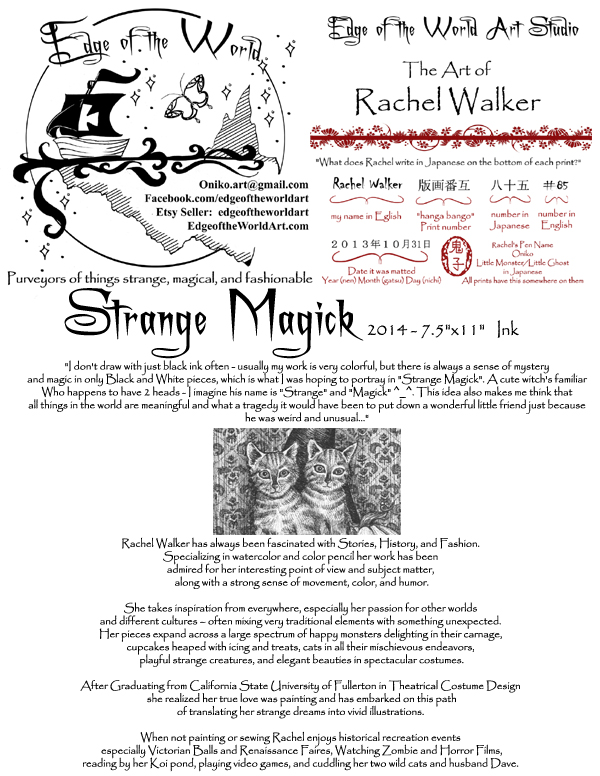 Edge of the World
Oniko.art@gmail.com
Facebook.com/edgeoftheworldart
Etsy Seller: edgeoftheworldart
EdgeoftheWorldArt.com
Purveyors of things strange, magical, and fashionable
Edge of the World Art Studio
The Art of
Rachel Walker
"What does Rachel write in Japanese on the bottom of each print?"
Rachel Walker 版画番互 八十五 #85
my name in Eglish "hanga bango" Print number number in Japanese number in English
2013年10月31日
Date it was matted
Year (nen) Month (gatsu) Day (nichi)
鬼子
Rachel's Pen Name
Oniko
Little Monster/Little Ghost
in Japanese
All prints have this somewhere on them
Strange Magick 2014 - 7.5"x11" Ink
"I don't draw with just black ink often - usually my work is very colorful, but there is always a sense of mystery
and magic in only Black and White pieces, which is what I was hoping to portray in "Strange Magick". A cute witch's familiar
Who happens to have 2 heads - I imagine his name is "Strange" and "Magick" ^_^. This idea also makes me think that
all things in the world are meaningful and what a tragedy it would have been to put down a wonderful little friend just because
he was weird and unusual..."
Rachel Walker has always been fascinated with Stories, History, and Fashion.
Specializing in watercolor and color pencil her work has been
admired for her interesting point of view and subject matter,
along with a strong sense of movement, color, and humor.
She takes inspiration from everywhere, especially her passion for other worlds
and different cultures – often mixing very traditional elements with something unexpected.
Her pieces expand across a large spectrum of happy monsters delighting in their carnage,
cupcakes heaped with icing and treats, cats in all their mischievous endeavors,
playful strange creatures, and elegant beauties in spectacular costumes.
After Graduating from California State University of Fullerton in Theatrical Costume Design
she realized her true love was painting and has embarked on this path
of translating her strange dreams into vivid illustrations.
When not painting or sewing Rachel enjoys historical recreation events
especially Victorian Balls and Renaissance Faires, Watching Zombie and Horror Films,
reading by her Koi pond, playing video games, and cuddling her two wild cats and husband Dave.